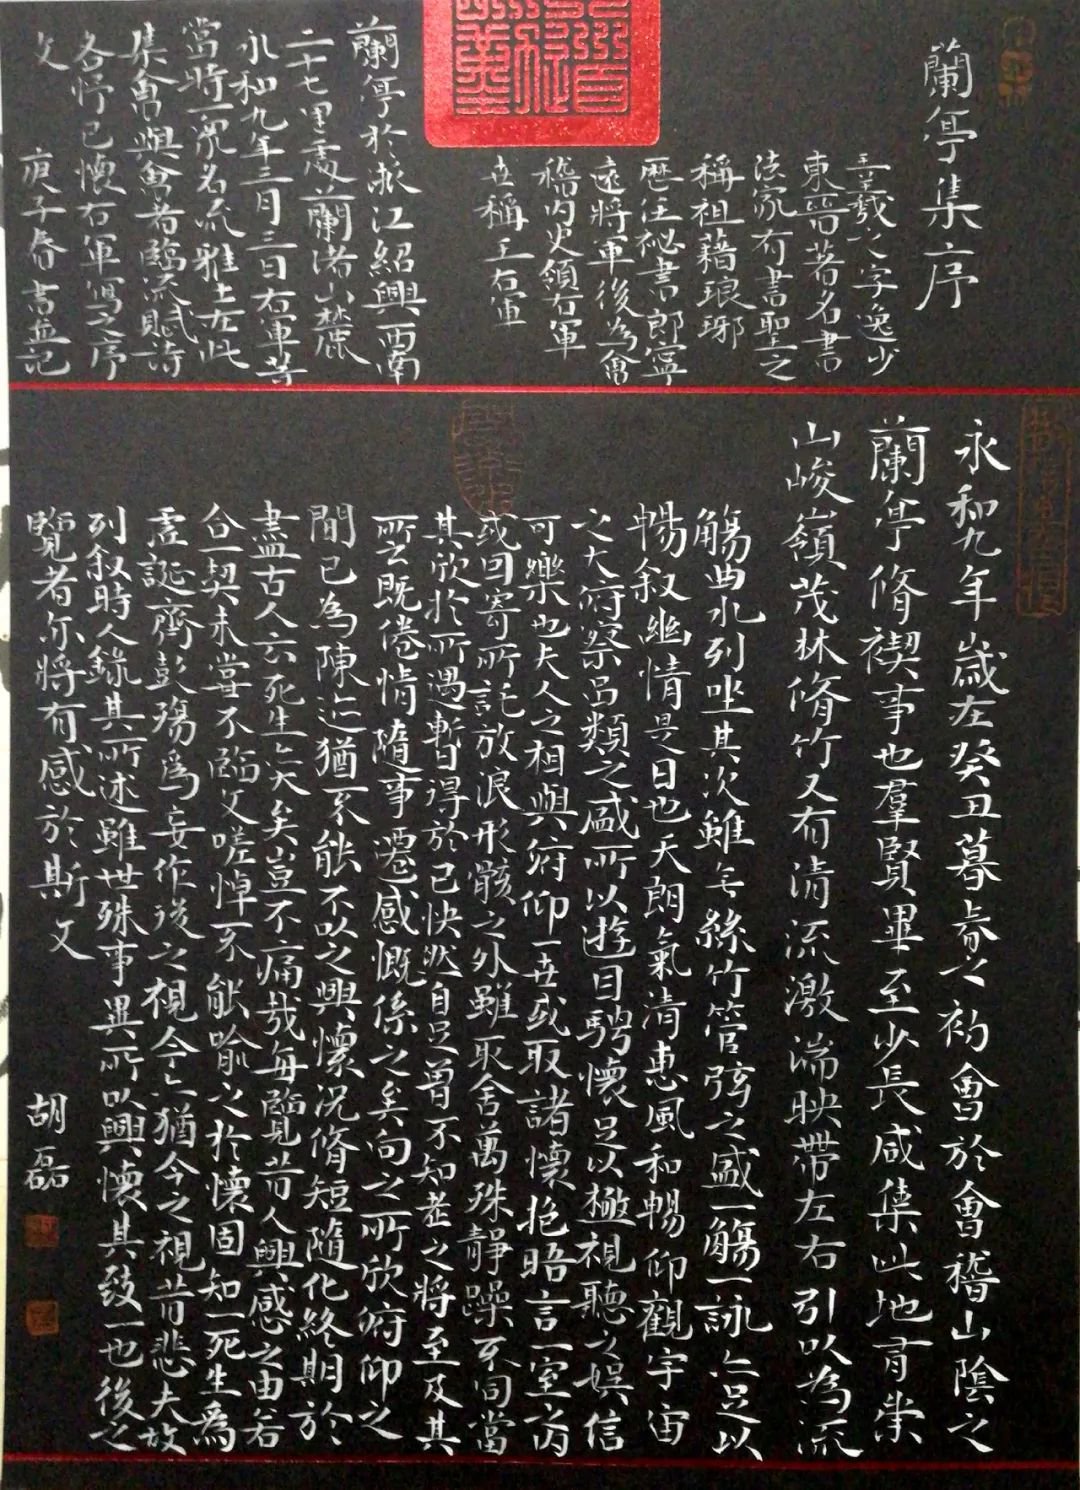 蘭亭集序
王羲之字逸少
東晉著名書
法家有書聖之
稱祖藉琅琊
歷任祕書郎寧
遠將軍後為會
稽內史領右軍
世稱王右軍
蘭亭於浙江紹興西南
二十七里處蘭渚山麓
永和九年三月三日右軍等
當時一眾名流雅士在此
集會與會者臨流賦詩
各抒己懷右軍寫之序
文 庚子春書並記
永和九年歲在癸丑暮春之初會於會稽山陰之
蘭亭脩禊事也羣賢畢至少長咸集此地有崇
山峻嶺茂林脩竹又有清流激湍映帶左右引以為流
觴曲水列坐其次雖無絲竹管弦之盛一觴一詠亦足以
暢敘幽情是日也天朗氣清惠風和暢仰觀宇宙
之大俯察品類之盛所以遊目騁懷足以極視聽之娛信
可樂也夫人之相與俯仰一世或取諸懷抱晤言一室之內
或因寄所託放浪形骸之外雖取舍萬殊靜躁不同當
其欣於所遇暫得於己快然自足曾不知老之將至及其
所之既倦情隨事遷感慨係之矣向之所欣俯仰之
間已為陳迹猶不能不以之興懷況脩短隨化終期於
盡古人云死生亦大矣豈不痛哉每覽昔人興感之由若
合一契未嘗不臨文嗟悼不能喻之於懷固知一死生為
虛誕齊彭殤為妄作後之視今亦猶今之視昔悲夫故
列敘時人錄其所述雖世殊事異所以興懷其致一也後之
覽者亦將有感於斯文
胡磊